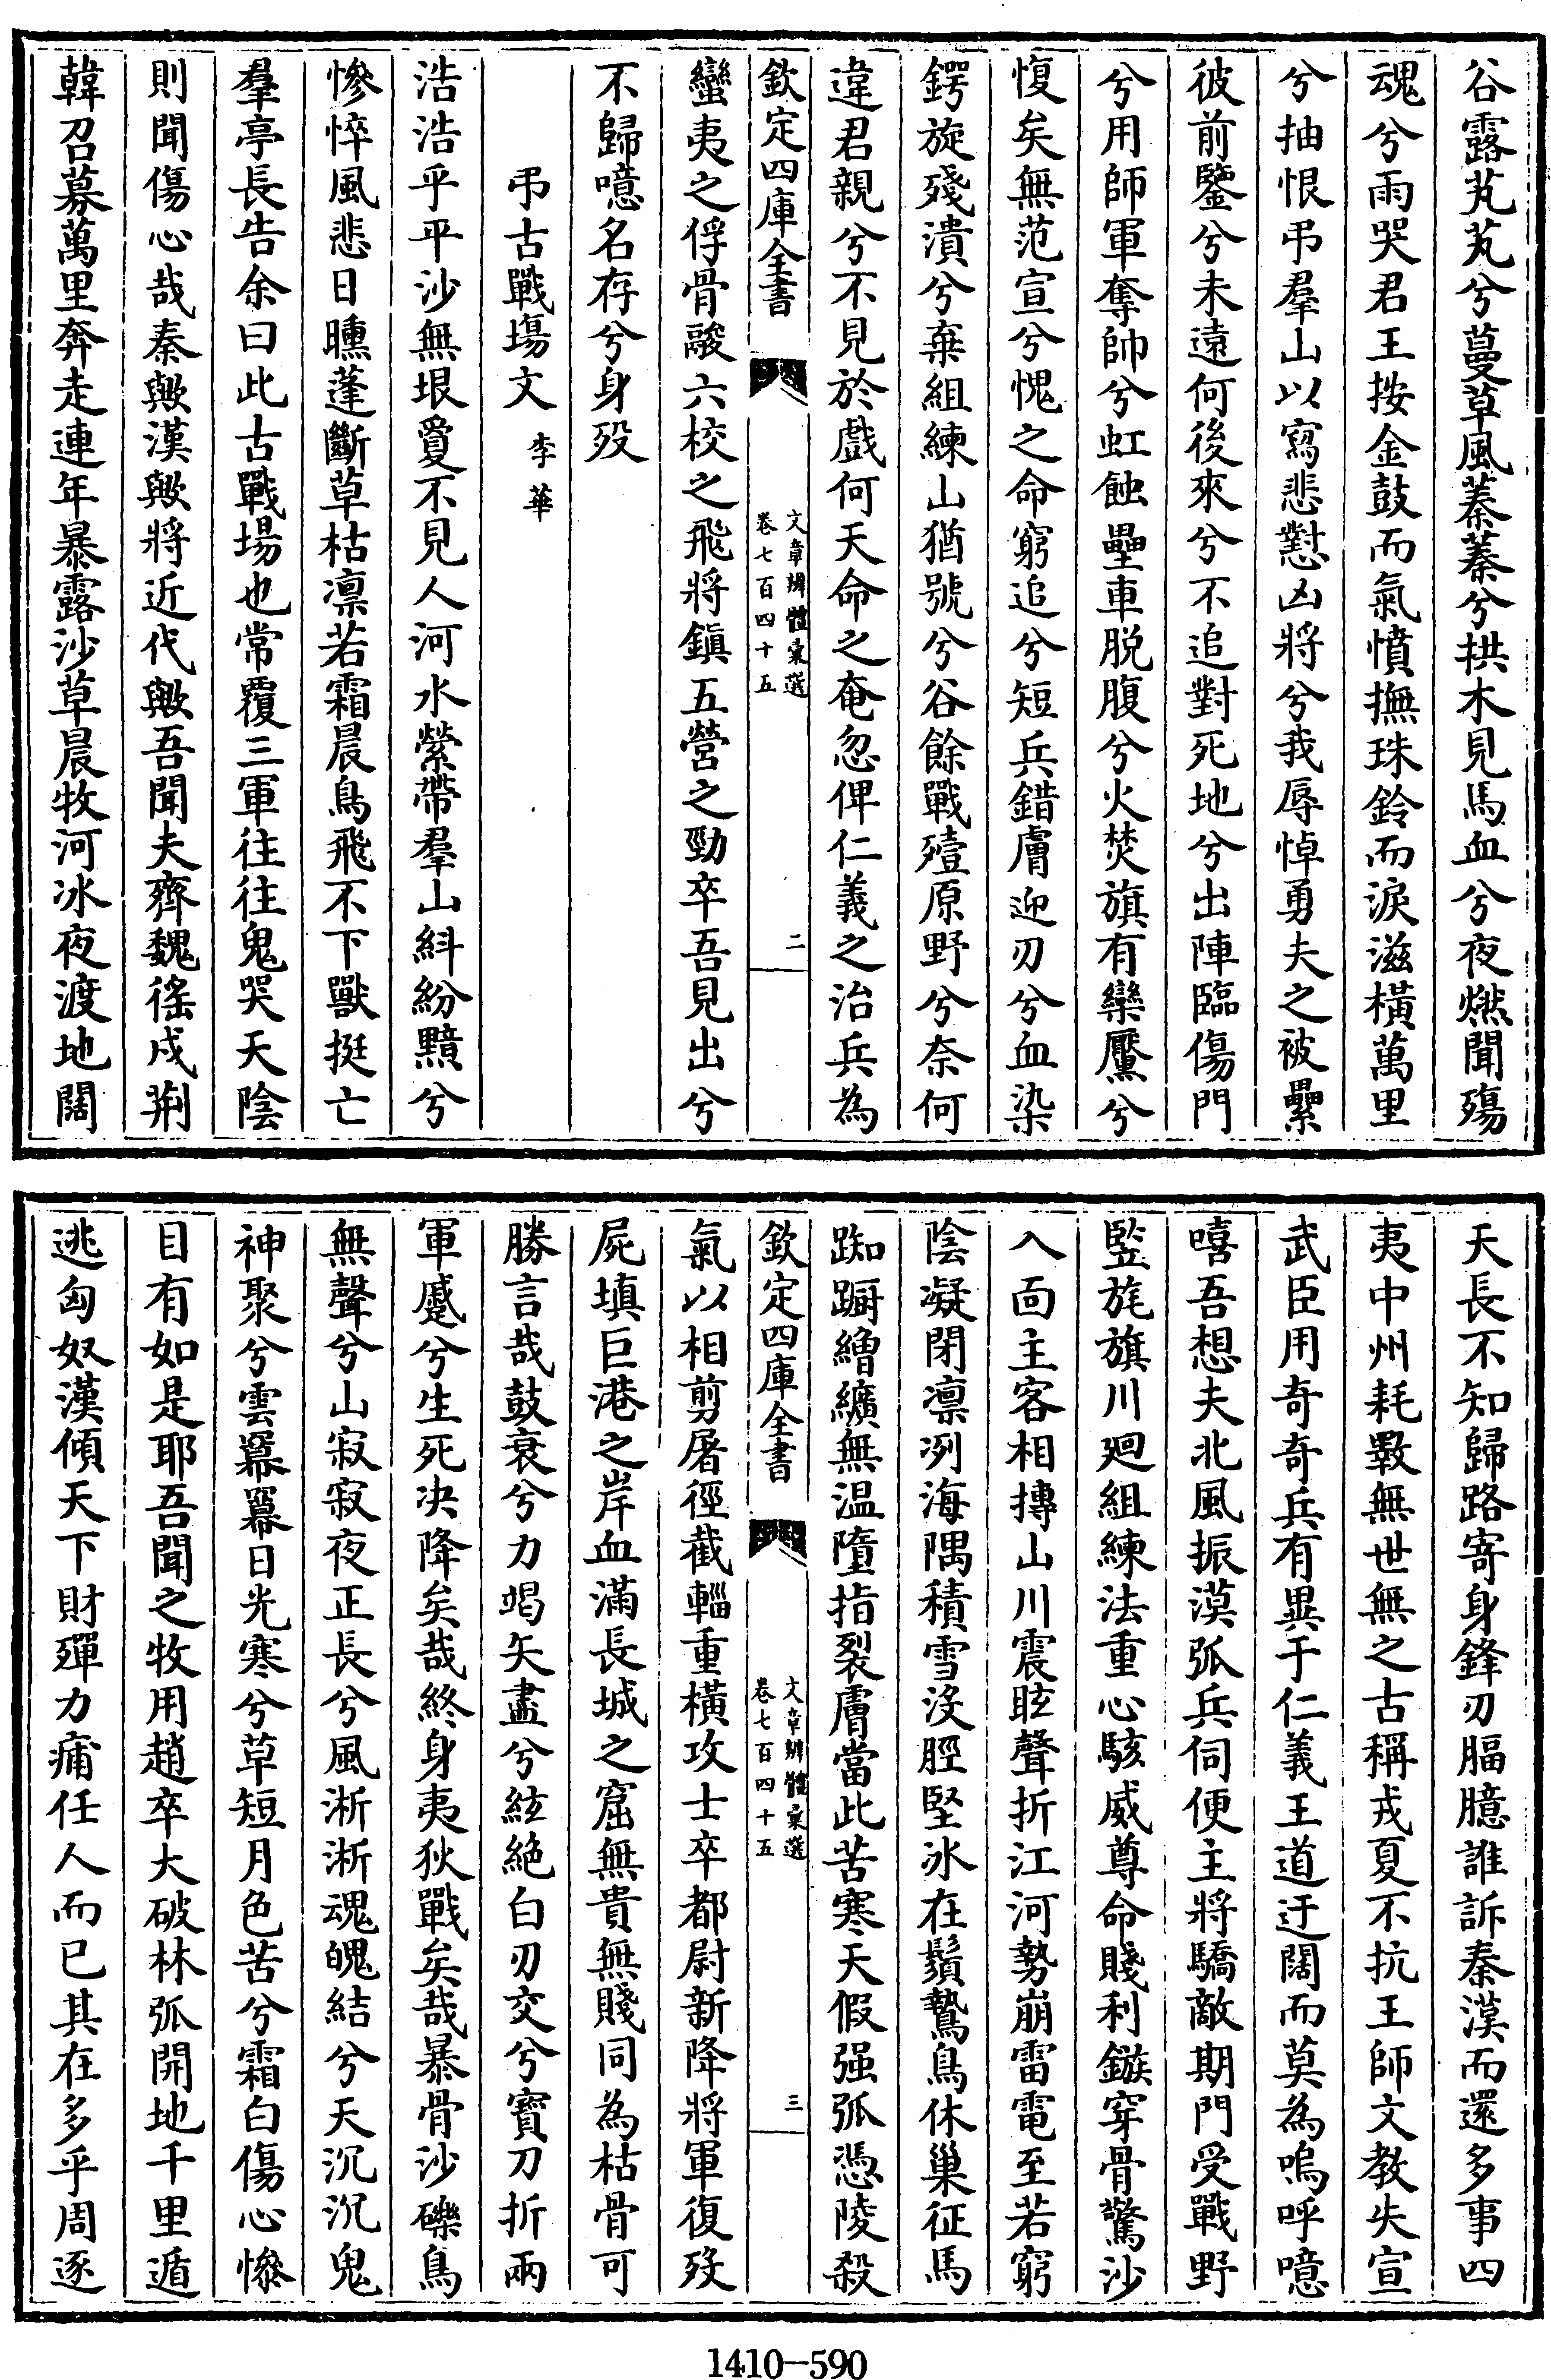 谷露芃芃兮蔓草風蓁蓁兮拱木見馬血兮夜燃聞殤
魂兮雨哭君王按金鼓而氣憤撫珠鈴而淚滋橫萬里
兮抽恨弔羣山以寫悲懟凶將兮我辱悼勇夫之被纍
彼前鑒兮未遠何後來兮不追對死地兮出陣臨傷門
兮用師軍奪帥兮虹蝕壘車脱腹兮火焚旗有欒黶兮
愎矣無范宣兮愧之命窮追兮短兵錯膚迎刃兮血染
鍔旋殘潰兮棄組練山猶號兮谷餘戰殪原野兮奈何
違君親兮不見於戲何天命之奄忽俾仁義之治兵為
欽定四庫全書
文章辨體彙選
卷七百四十五
二
蠻夷之俘骨醆六校之飛將鎮五營之勁卒吾見出兮
不歸噫名存兮身歿
弔古戰塲文 李華
浩浩乎平沙無垠敻不見人河水縈帶羣山糾紛黯兮
慘悴風悲日曛蓬斷草枯凛若霜晨鳥飛不下獸挺亡
羣亭長告余曰此古戰場也常覆三軍往往鬼哭天陰
則聞傷心哉秦歟漢歟將近代歟吾聞夫齊魏徭戍荆
韓召募萬里奔走連年暴露沙草晨牧河冰夜渡地闊
天長不知歸路寄身鋒刃腷臆誰訴秦漢而還多事四
夷中州耗斁無世無之古稱戎夏不抗王師文教失宣
武臣用奇奇兵有異于仁義王道迂闊而莫為嗚呼噫
嘻吾想夫北風振漠弧兵伺便主將驕敵期門受戰野
監旄旗川廻組練法重心駭威尊命賤利鏃穿骨驚沙
入面主客相摶山川震眩聲折江河勢崩雷電至若窮
陰凝閉凛冽海隅積雪沒脛堅冰在鬚鷙鳥休巢征馬
踟蹰繒纊無温墮指裂膚當此苦寒天假强弧憑陵殺
欽定四庫全書
文章辨體彙選
卷七百四十五
三
氣以相剪屠徑截輜重橫攻士卒都尉新降將軍復歿
屍填巨港之岸血滿長城之窟無貴無賤同為枯骨可
勝言哉鼓衰兮力竭矢盡兮絃絶白刃交兮寶刀折兩
軍蹙兮生死决降矣哉終身夷狄戰矣哉暴骨沙礫鳥
無聲兮山寂寂夜正長兮風淅淅魂魄結兮天沉沉鬼
神聚兮雲羃羃日光寒兮草短月色苦兮霜白傷心慘
目有如是耶吾聞之牧用趙卒大破林弧開地千里遁
逃匈奴漢傾天下財殫力痡任人而已其在多乎周逐
1410-590